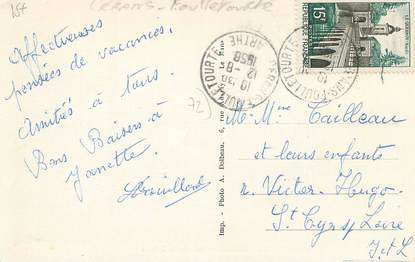 154
CERANS-Foulletourte
Affectueuses
pensées de vacances,
Amitiés à tous.
Bons Baisers à
Janette.
Drouillard
72
Imp. - Photo A. Dolbeau. 6, rue Le Mans
CERANS-FOULLETOURTE
SARTHE
10 H 30
12 -8
1958
15F
M. Mme Tailleau
et leurs enfants
r. Victor-Hugo
St Cyr s/ Loire
I & L